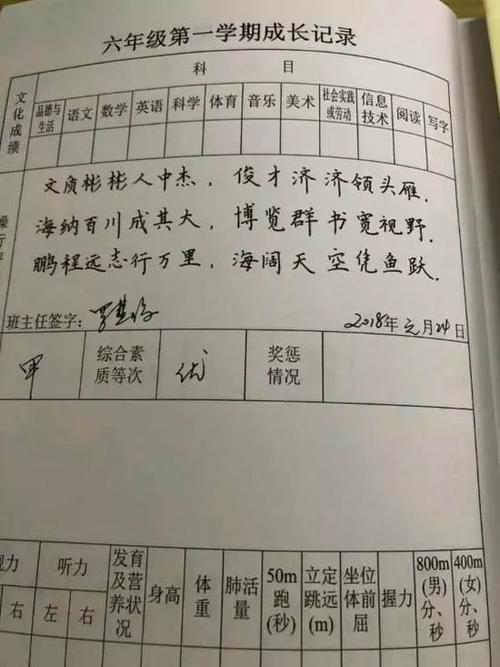 六年级第一学期成长记录
科 目
文化成绩
品德与生活 语文 数学 英语 科学 体育 音乐 美术 社会实践或劳动 信息技术 阅读 写字
文质彬彬人中杰，俊才济济领头雁.
海纳百川成其大，博览群书宽视野.
鹏程远志行万里，海阔天空凭鱼跃.
班主任签字： 2018年元月24日
甲 综合素质等次 优 奖惩情况
视力 听力 发育及营养状况 身高 体重 肺活量 50m跑(秒) 立定跳远(m) 坐位体前屈 握力 800m(男)分、秒 400m(女)分、秒
右 左 右